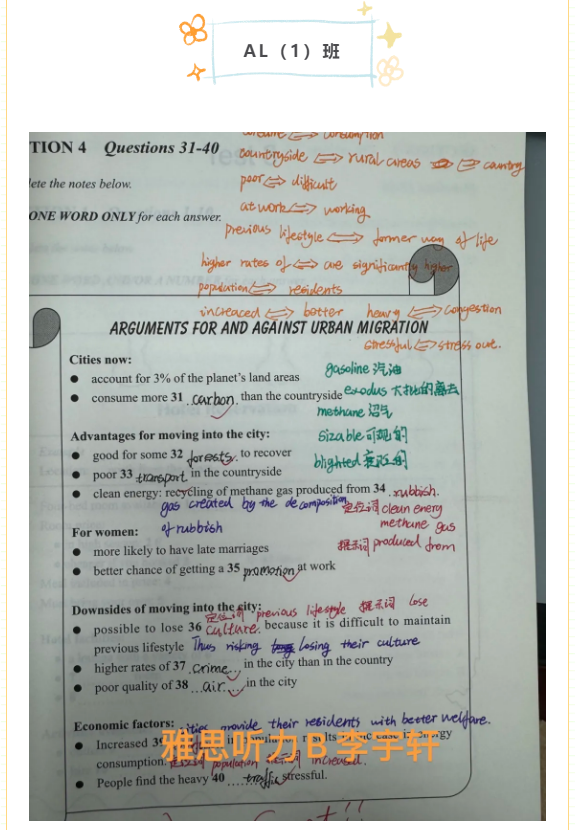 AL（1）班
consumption
TION 4 Questions 31-40
countryside ⟺ rural areas ⟺ country
lete the notes below.
poor ⟺ difficult
ONE WORD ONLY for each answer.
at work ⟺ working
previous lifestyle ⟺ former way of life
higher rates of ⟺ are significantly higher
population ⟺ residents
increaced ⟺ better heavy ⟺ congestion
ARGUMENTS FOR AND AGAINST URBAN MIGRATION
stressful ⟺ stress out.
Cities now:
gasoline 汽油
● account for 3% of the planet's land areas
exodus 大批的离去
● consume more 31 carbon than the countryside
methane 沼气
Advantages for moving into the city:
sizable 可观的
● good for some 32 forests. to recover
blighted 的
● poor 33 transport in the countryside
● clean energy: recycling of methane gas produced from 34 rubbish.
gas created by the decomposition
of rubbish
定位词 clean enery
methane gas
提示词 produced from
For women:
● more likely to have late marriages
● better chance of getting a 35 promotion at work
Downsides of moving into the city:
定位词 previous lifestyle 提示词 lose
● possible to lose 36 culture. because it is difficult to maintain
previous lifestyle Thus risking losing their culture
● higher rates of 37 crime in the city than in the country
● poor quality of 38 air in the city
Economic factors: cities provide their residents with better welfare.
● Increased 39 in population results in increase in energy
雅思听力B 李宇轩
consumption. 定位词 population 提示词 increased.
● People find the heavy 40 traffic stressful.